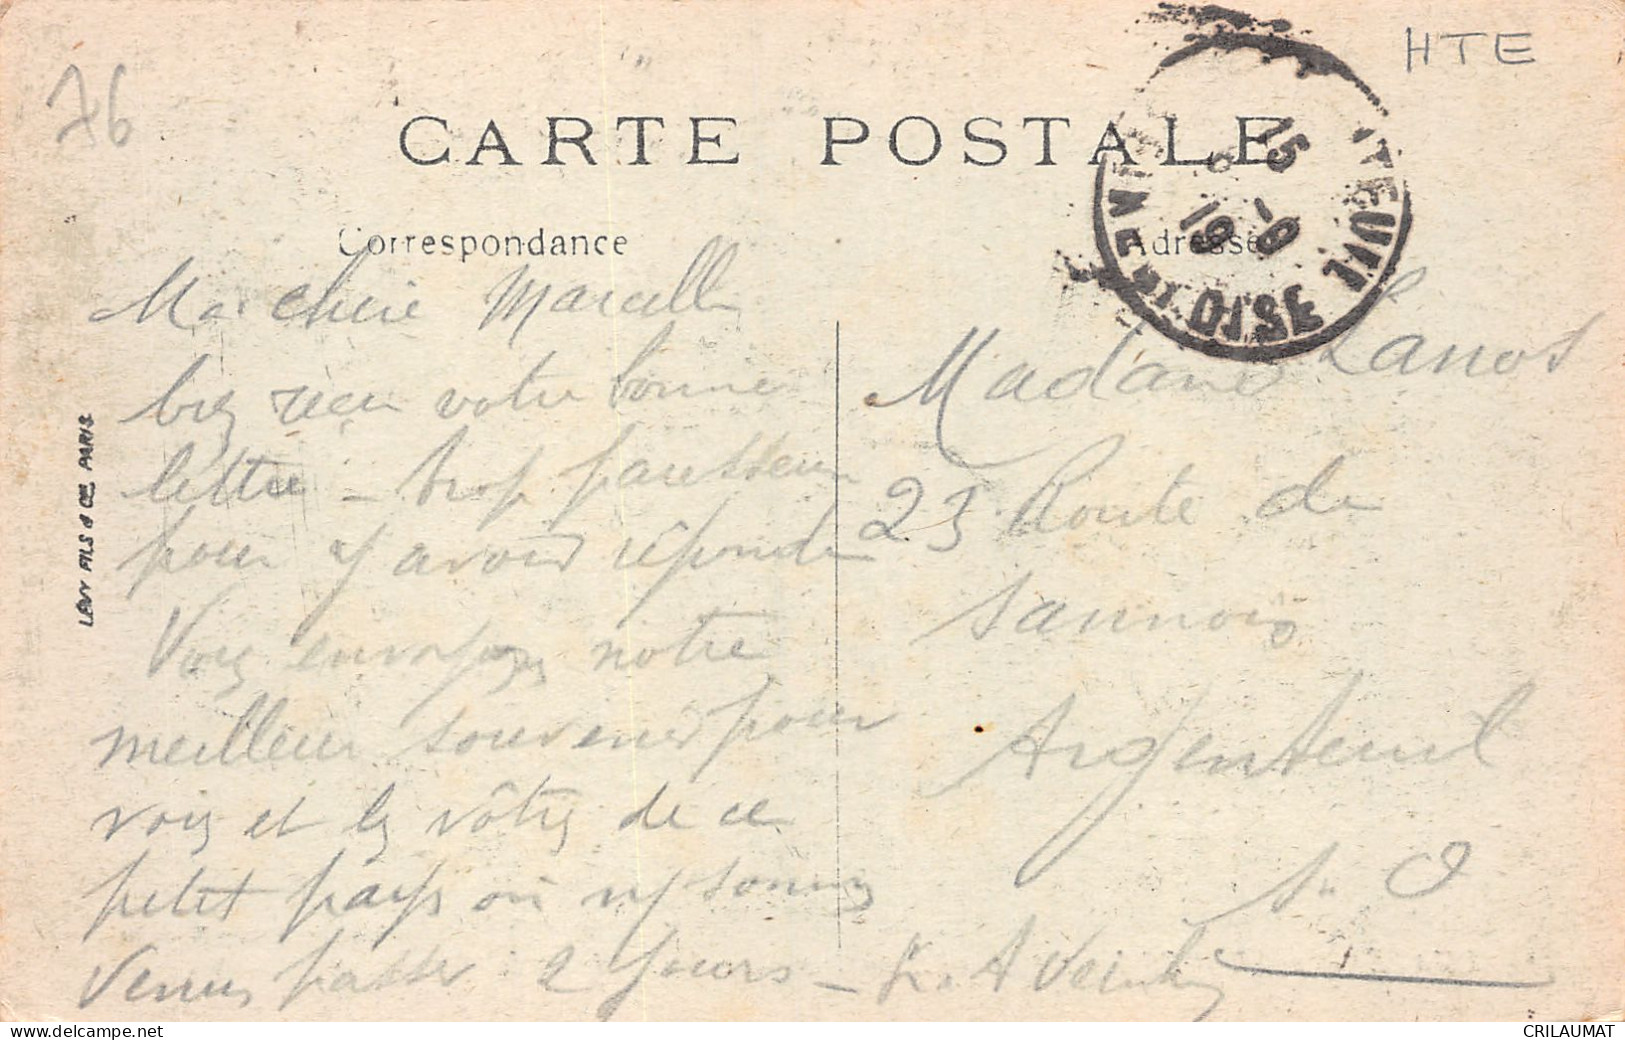 76
HTE
CARTE POSTALE
Correspondance
Adresse
15 - 8
19
OISE
LEVY FILS & CIE. PARIS
Ma chère Marcelle
bien reçu votre bonne
lettre - trop paresseux
pour y avoir répondu
Vous envoyons notre
meilleur souvenir pour
vous et les vôtres de ce
petit pays où ns sommes
venus passer 2 jours -
Madame Lanos
23 Route de
Sannois
Argenteuil
S. O
CRILAUMAT